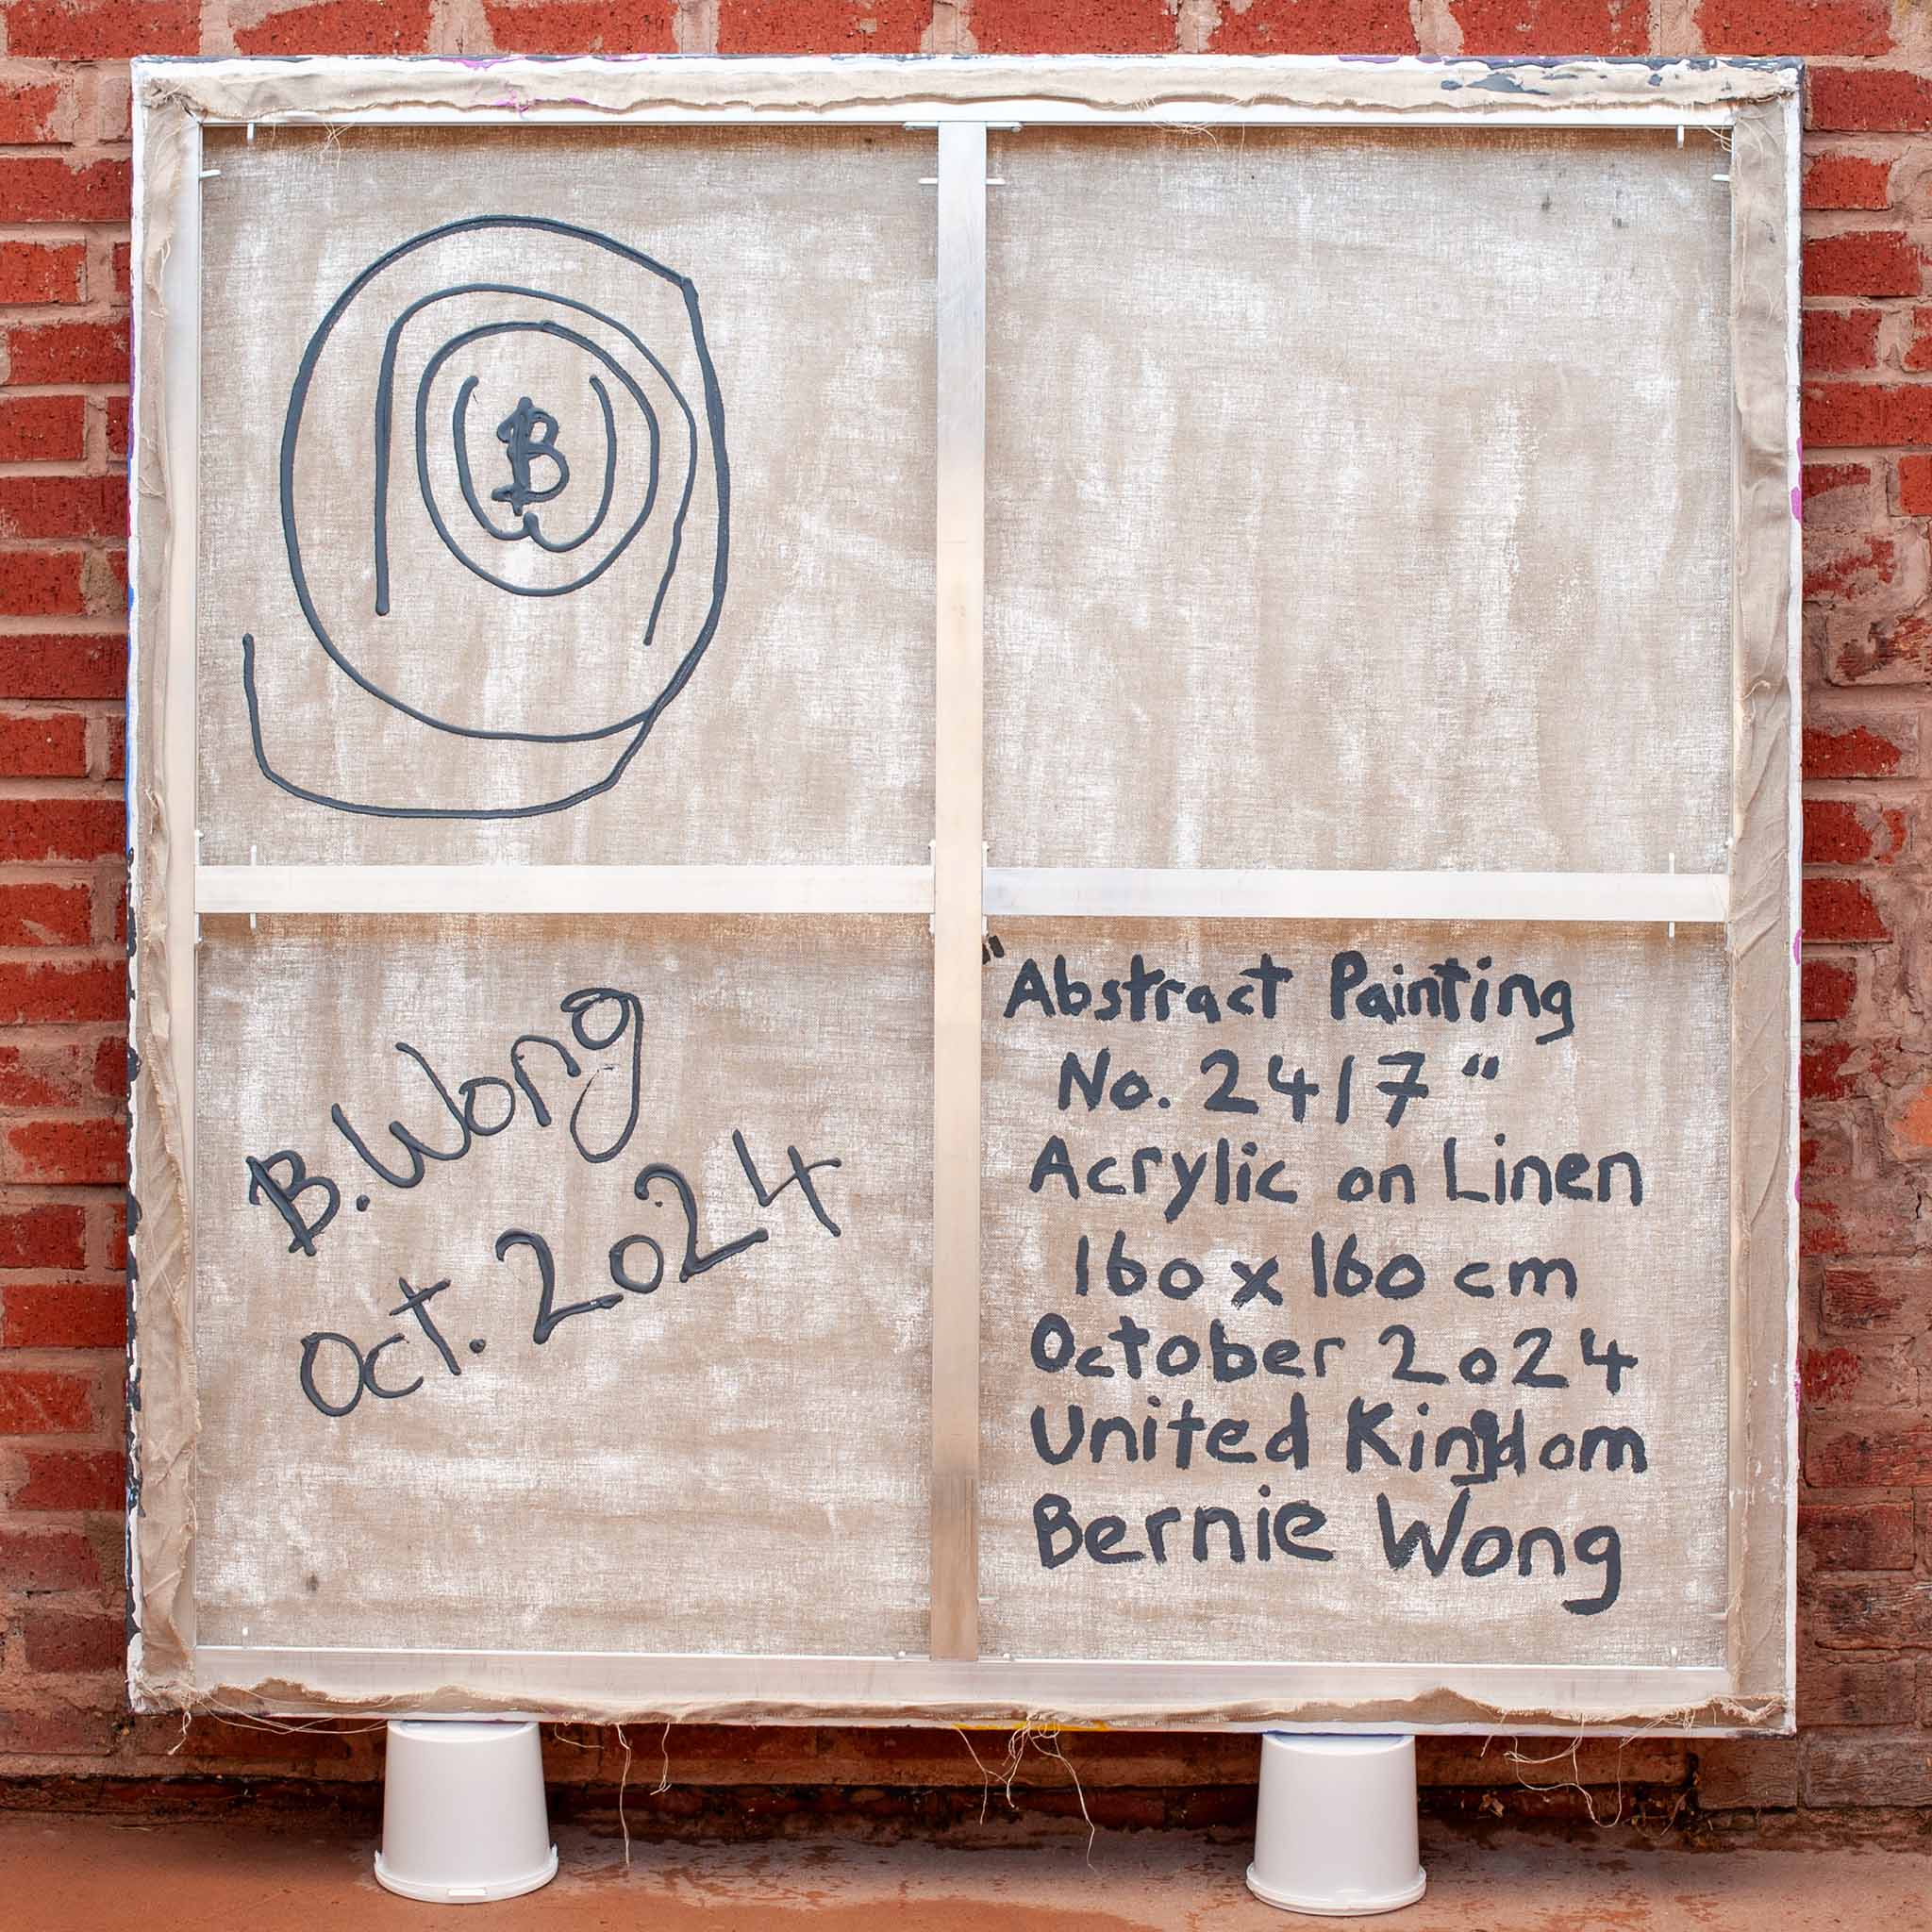 B
B. Wong
Oct. 2024
"Abstract Painting
No. 2417"
Acrylic on Linen
160 x 160 cm
October 2024
United Kingdom
Bernie Wong